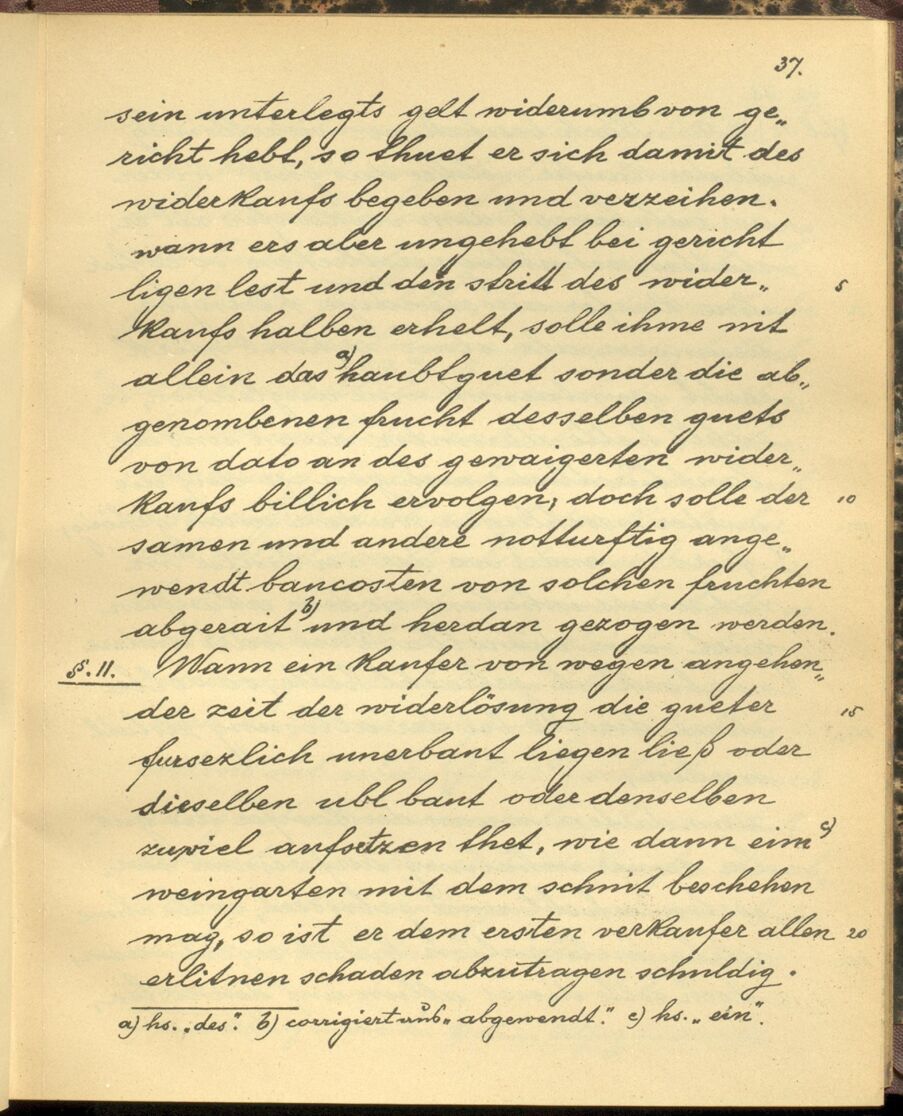 37.
sein unterlegts gelt widerumb von ge„
richt hebt, so thuet er sich damit des
widerkaufs begeben und verzeihen.
wann ers aber ungehebt bei gericht
ligen lest und den stritt des wider„ 5
kaufs halben erhelt, solle ihme nit
allein das a) haubtguet sonder die ab„
genombenen frucht desselben guets
von dato an des gewaigerten wider„
kaufs billich ervolgen; doch solle der 10
samen und andere notturftig ange„
wendt baucosten von solchen fruchten
abgerait b) und herdan gezogen werden.
§. 11. Wann ein kaufer von wegen angehen„
der zeit der widerlösung die gueter 15
fursezlich unerbaut liegen ließ oder
dieselben ubl baut oder denselben
zuviel aufsetzen thet, wie dann eim c)
weingarten mit dem schnit beschehen
mag, so ist er dem ersten verkaufer allen 20
erlitnen schaden abzutragen schuldig.
a) hs. „des“. b) corrigiert aus „abgewendt.“ c) hs. „ein“.